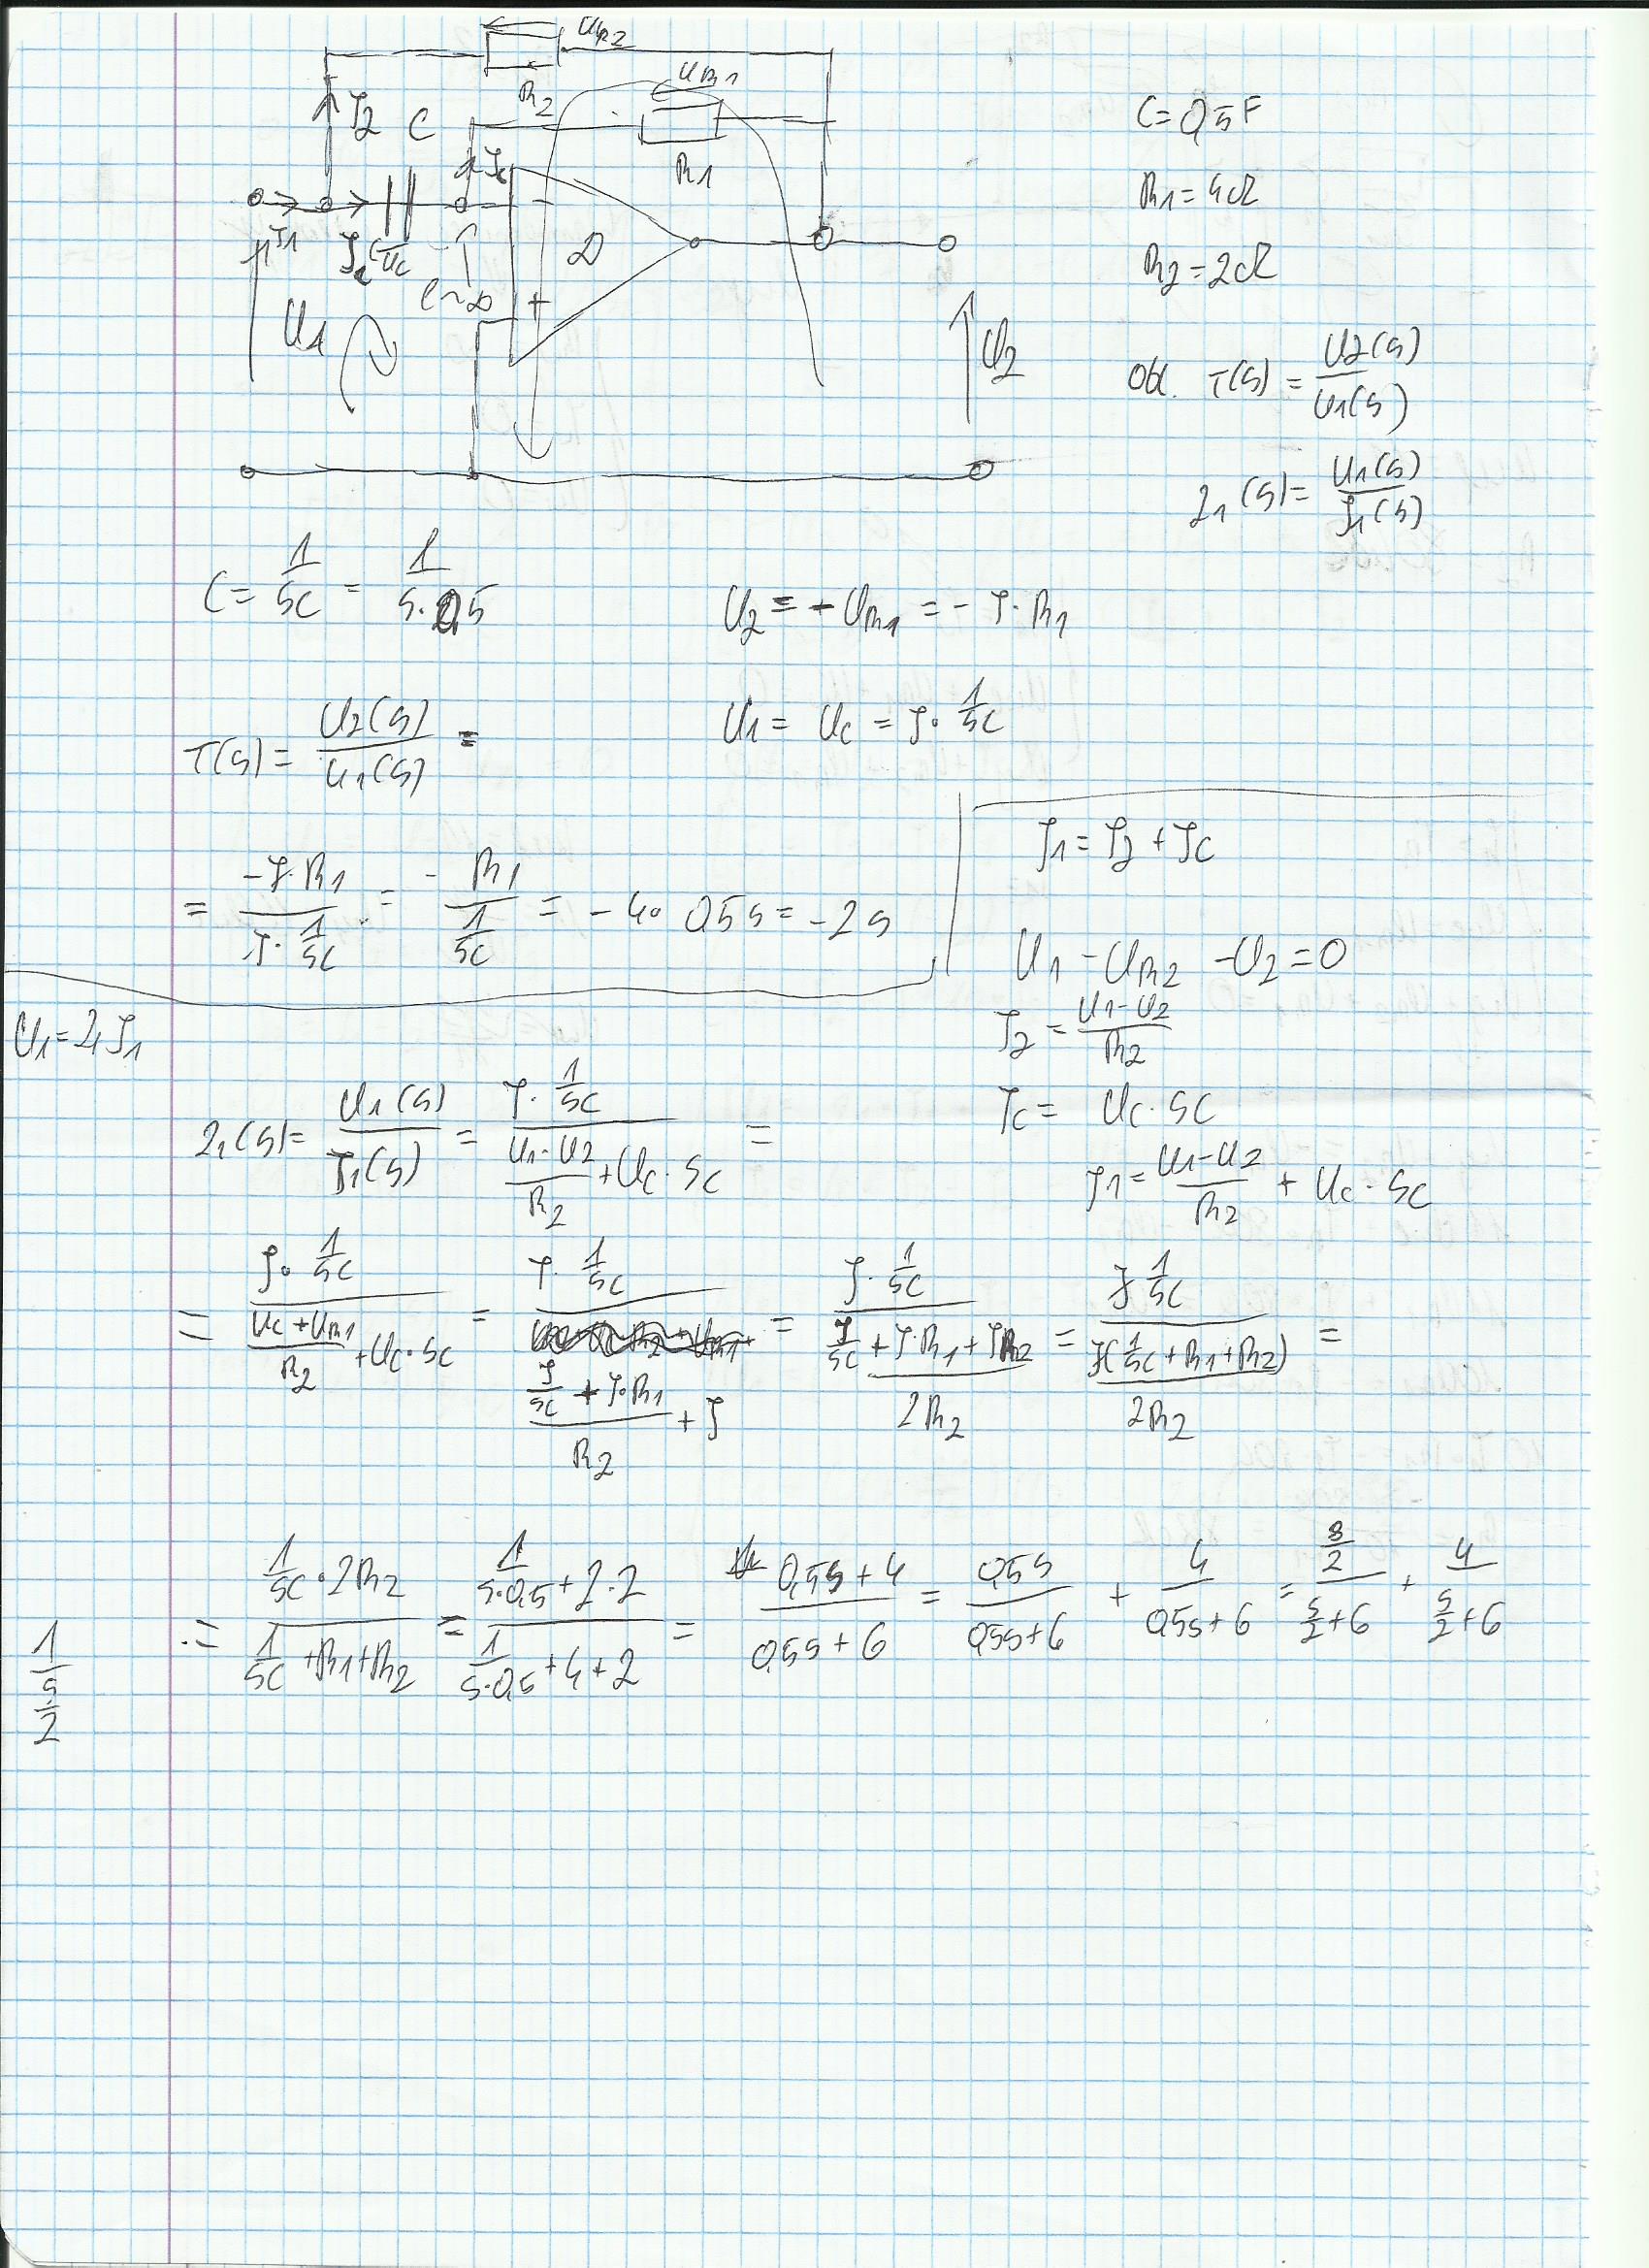 U_R2
U_R1
I2 C R2
R1
I1 Ic Uc
∞
+
U1
U2
C = 0,5F
R1 = 4Ω
R2 = 2Ω
obl. T(s) = U2(s) / U1(s)
Z1(s) = U1(s) / I1(s)
C = 1/sC = 1/(s·0,5)
U2 = -U_R1 = -I·R1
T(s) = U2(s)/U1(s) =
U1 = Uc = I·1/sC
= (-I·R1)/(I·1/sC) = -R1/(1/sC) = -4·0,5s = -2s
I1 = I2 + Ic
U1 - U_R2 - U2 = 0
I2 = (U1-U2)/R2
Ic = Uc·sC
I1 = (U1-U2)/R2 + Uc·sC
U1 = Z1 I1
Z1(s) = U1(s)/I1(s) = (I·1/sC)/((U1-U2)/R2 + Uc·sC) =
= (I·1/sC)/((Uc+U_R1)/R2 + Uc·sC) = (I·1/sC)/((I/sC + I·R1)/R2 + I) = (I·1/sC)/((I/sC + I·R1 + IR2)/2R2) = (I 1/sC)/(I(1/sC + R1 + R2)/2R2) =
= (1/sC·2R2)/(1/sC + R1 + R2) = (1/(s·0,5) + 2·2)/(1/(s·0,5) + 4 + 2) = (0,5s + 4)/(0,5s + 6) = 0,5s/(0,5s + 6) + 4/(0,5s + 6) = (s/2)/(s/2 + 6) + 4/(s/2 + 6)
1/(s/2)